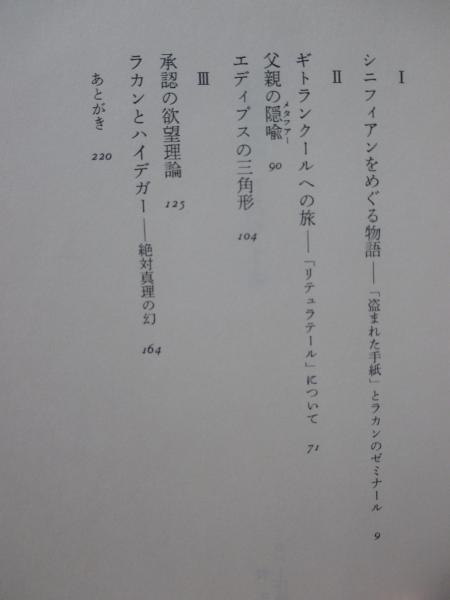 Ⅰ
シニフィアンをめぐる物語――「盗まれた手紙」とラカンのゼミナール 9
Ⅱ
ギトランクールへの旅――「リテュラテール」について 71
父親の隠喩 メタファー 90
エディプスの三角形 104
Ⅲ
承認の欲望理論 125
ラカンとハイデガー――絶対真理の幻 164
あとがき 220